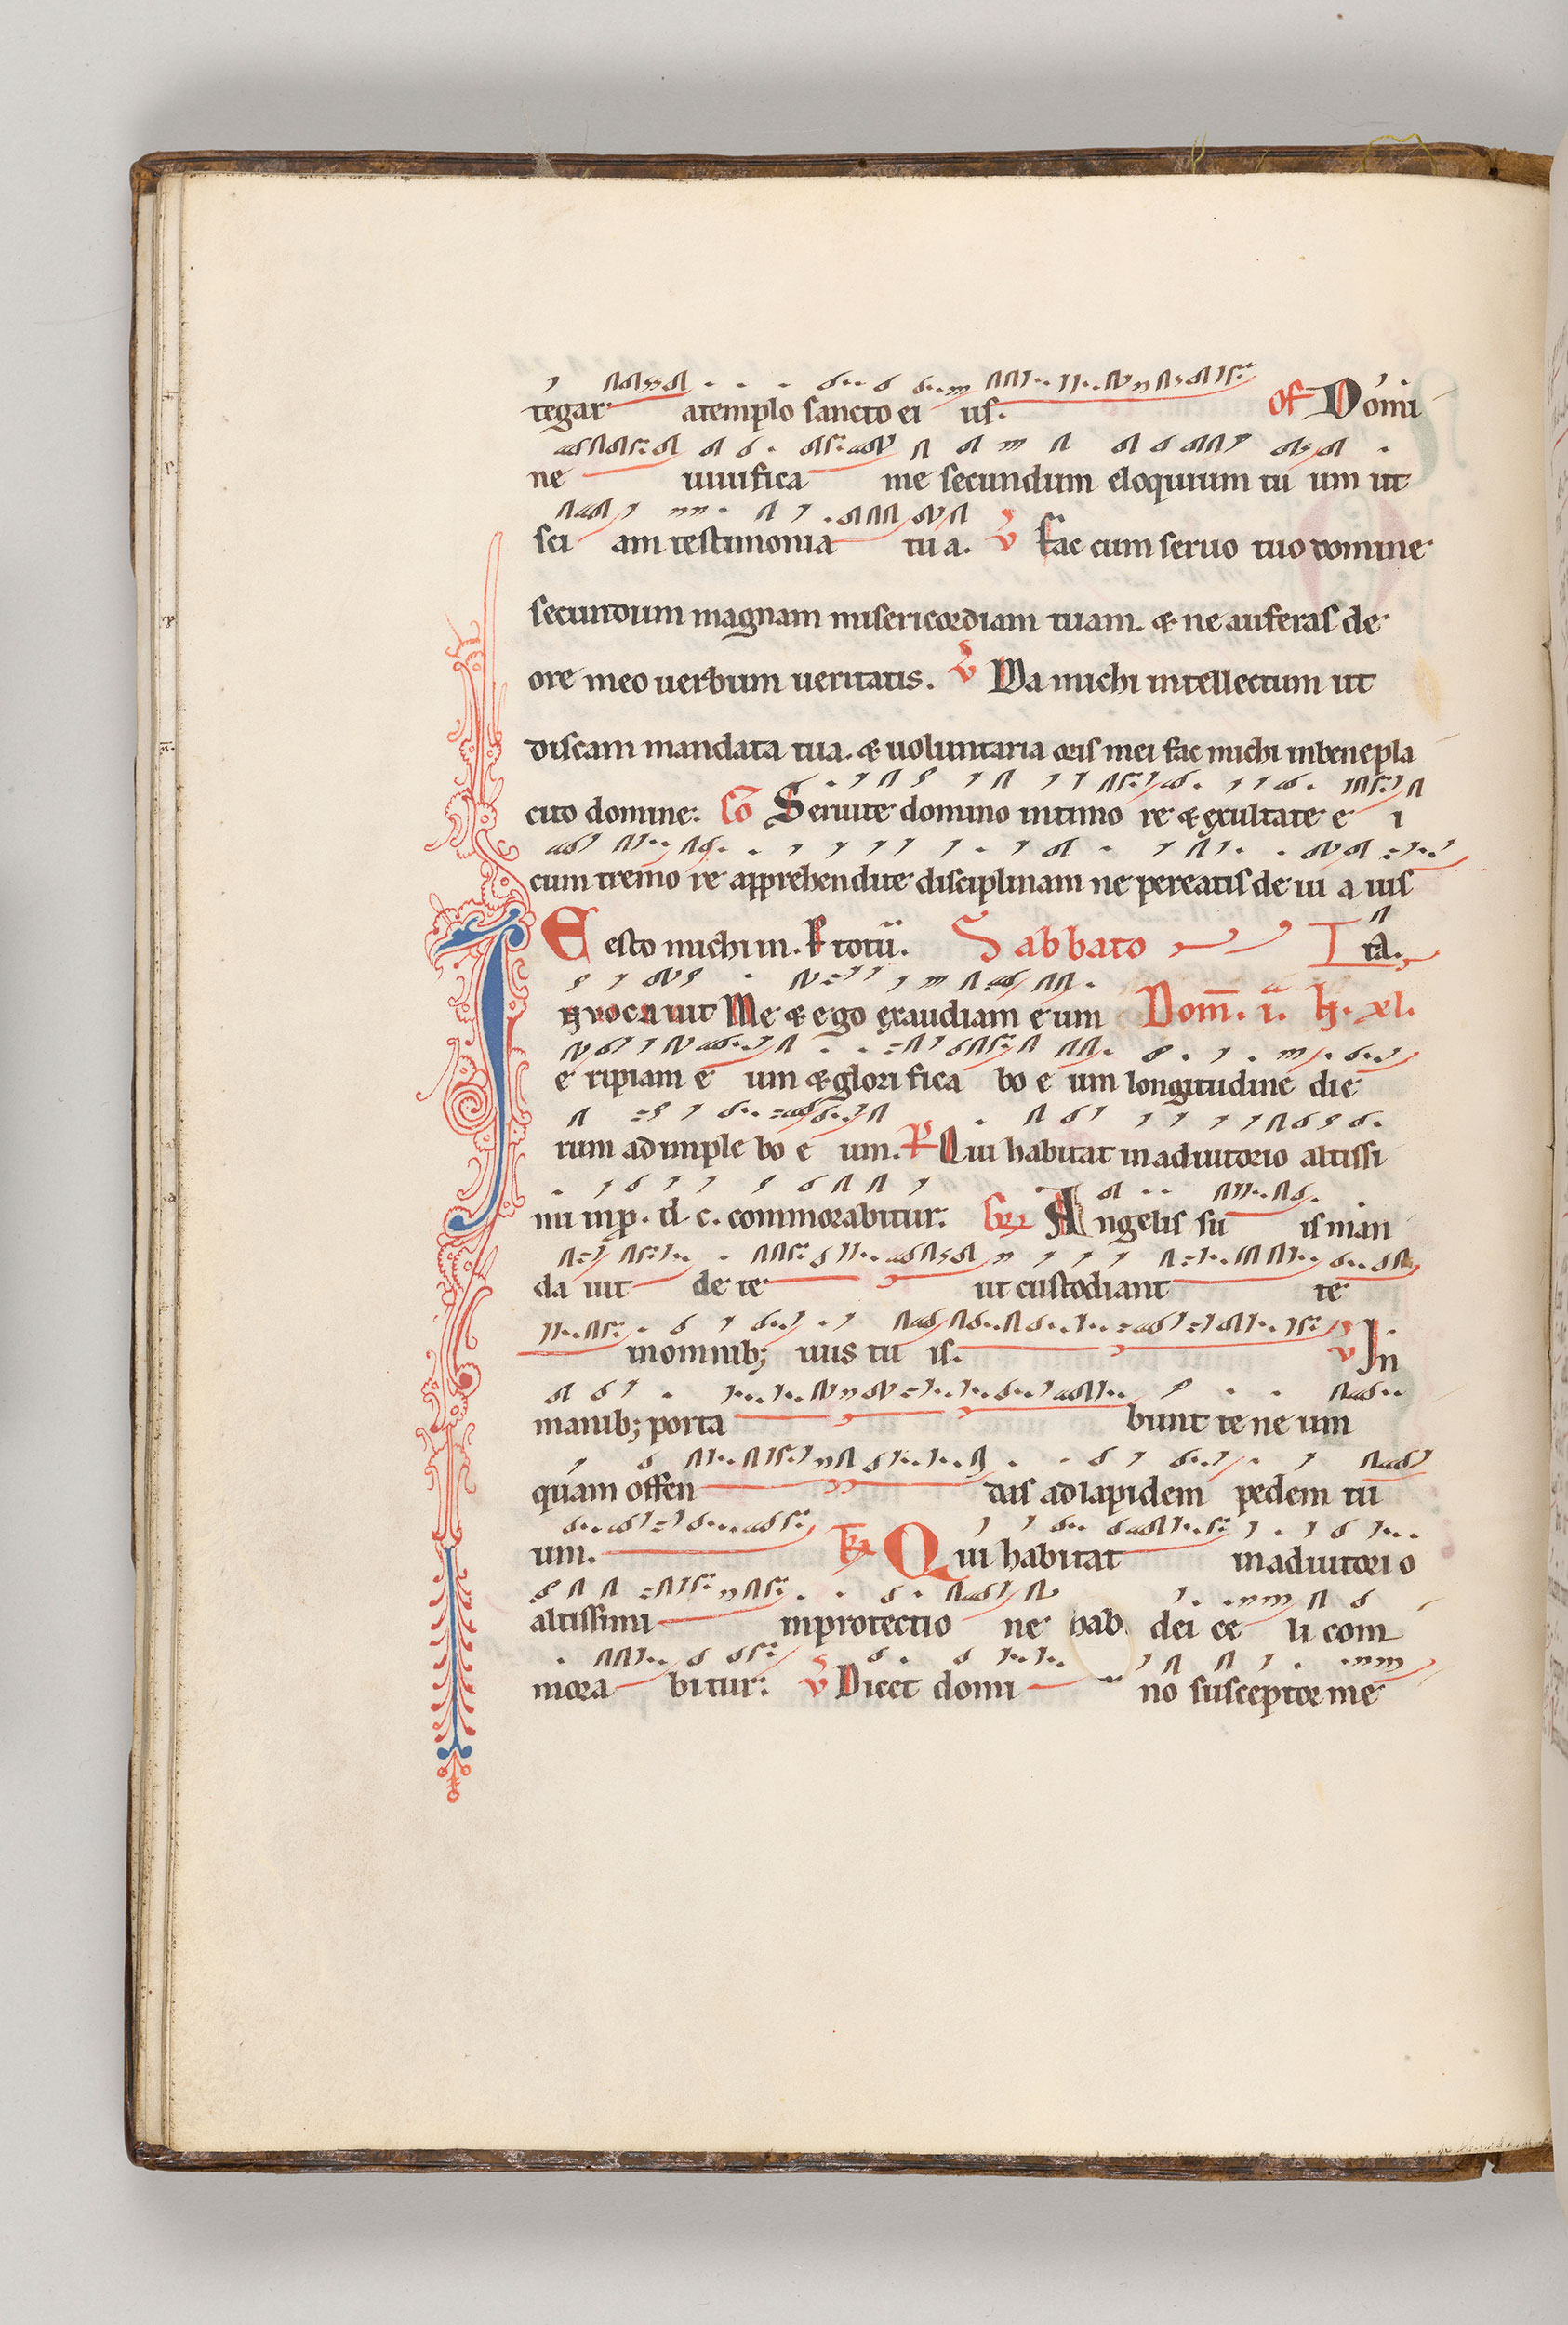 tegar atemplo sancto ei us. of Domi
ne uiuifica me secundum eloquium tu um ut
sci am testimonia tua. v̄ fac cum seruo tuo domine
secundum magnam misericordiam tuam. & ne auferas de
ore meo uerbum ueritatis. v̄ Da michi intellectum ut
discam mandata tua. & uoluntaria oris mei fac michi inbenepla
cito domine: Cō Seruite domino intimo re & exultate e i
cum tremo re apprehendite disciplinam ne pereatis de ui a iusta.
E esto michi in. totū. Sabbato
I nuocauit Me & ego exaudiam eum Dom̄. i. xl.
e ripiam e um & glorifica bo e um longitudine die
rum adimple bo e um. P Qui habitat in adiutorio altissi
mi inp. d. c. commorabitur. Gr Angelis su is man
da uit de te ut custodiant te
inomnib; uiis tu is. v In
manib; porta bunt te ne um
quam offen das ad lapidem pedem tu
um. Tr Qui habitat in adiutorio
altissimi inprotectio ne hab. dei ce li com
mora bitur: v̄ Dicet domi no susceptor me